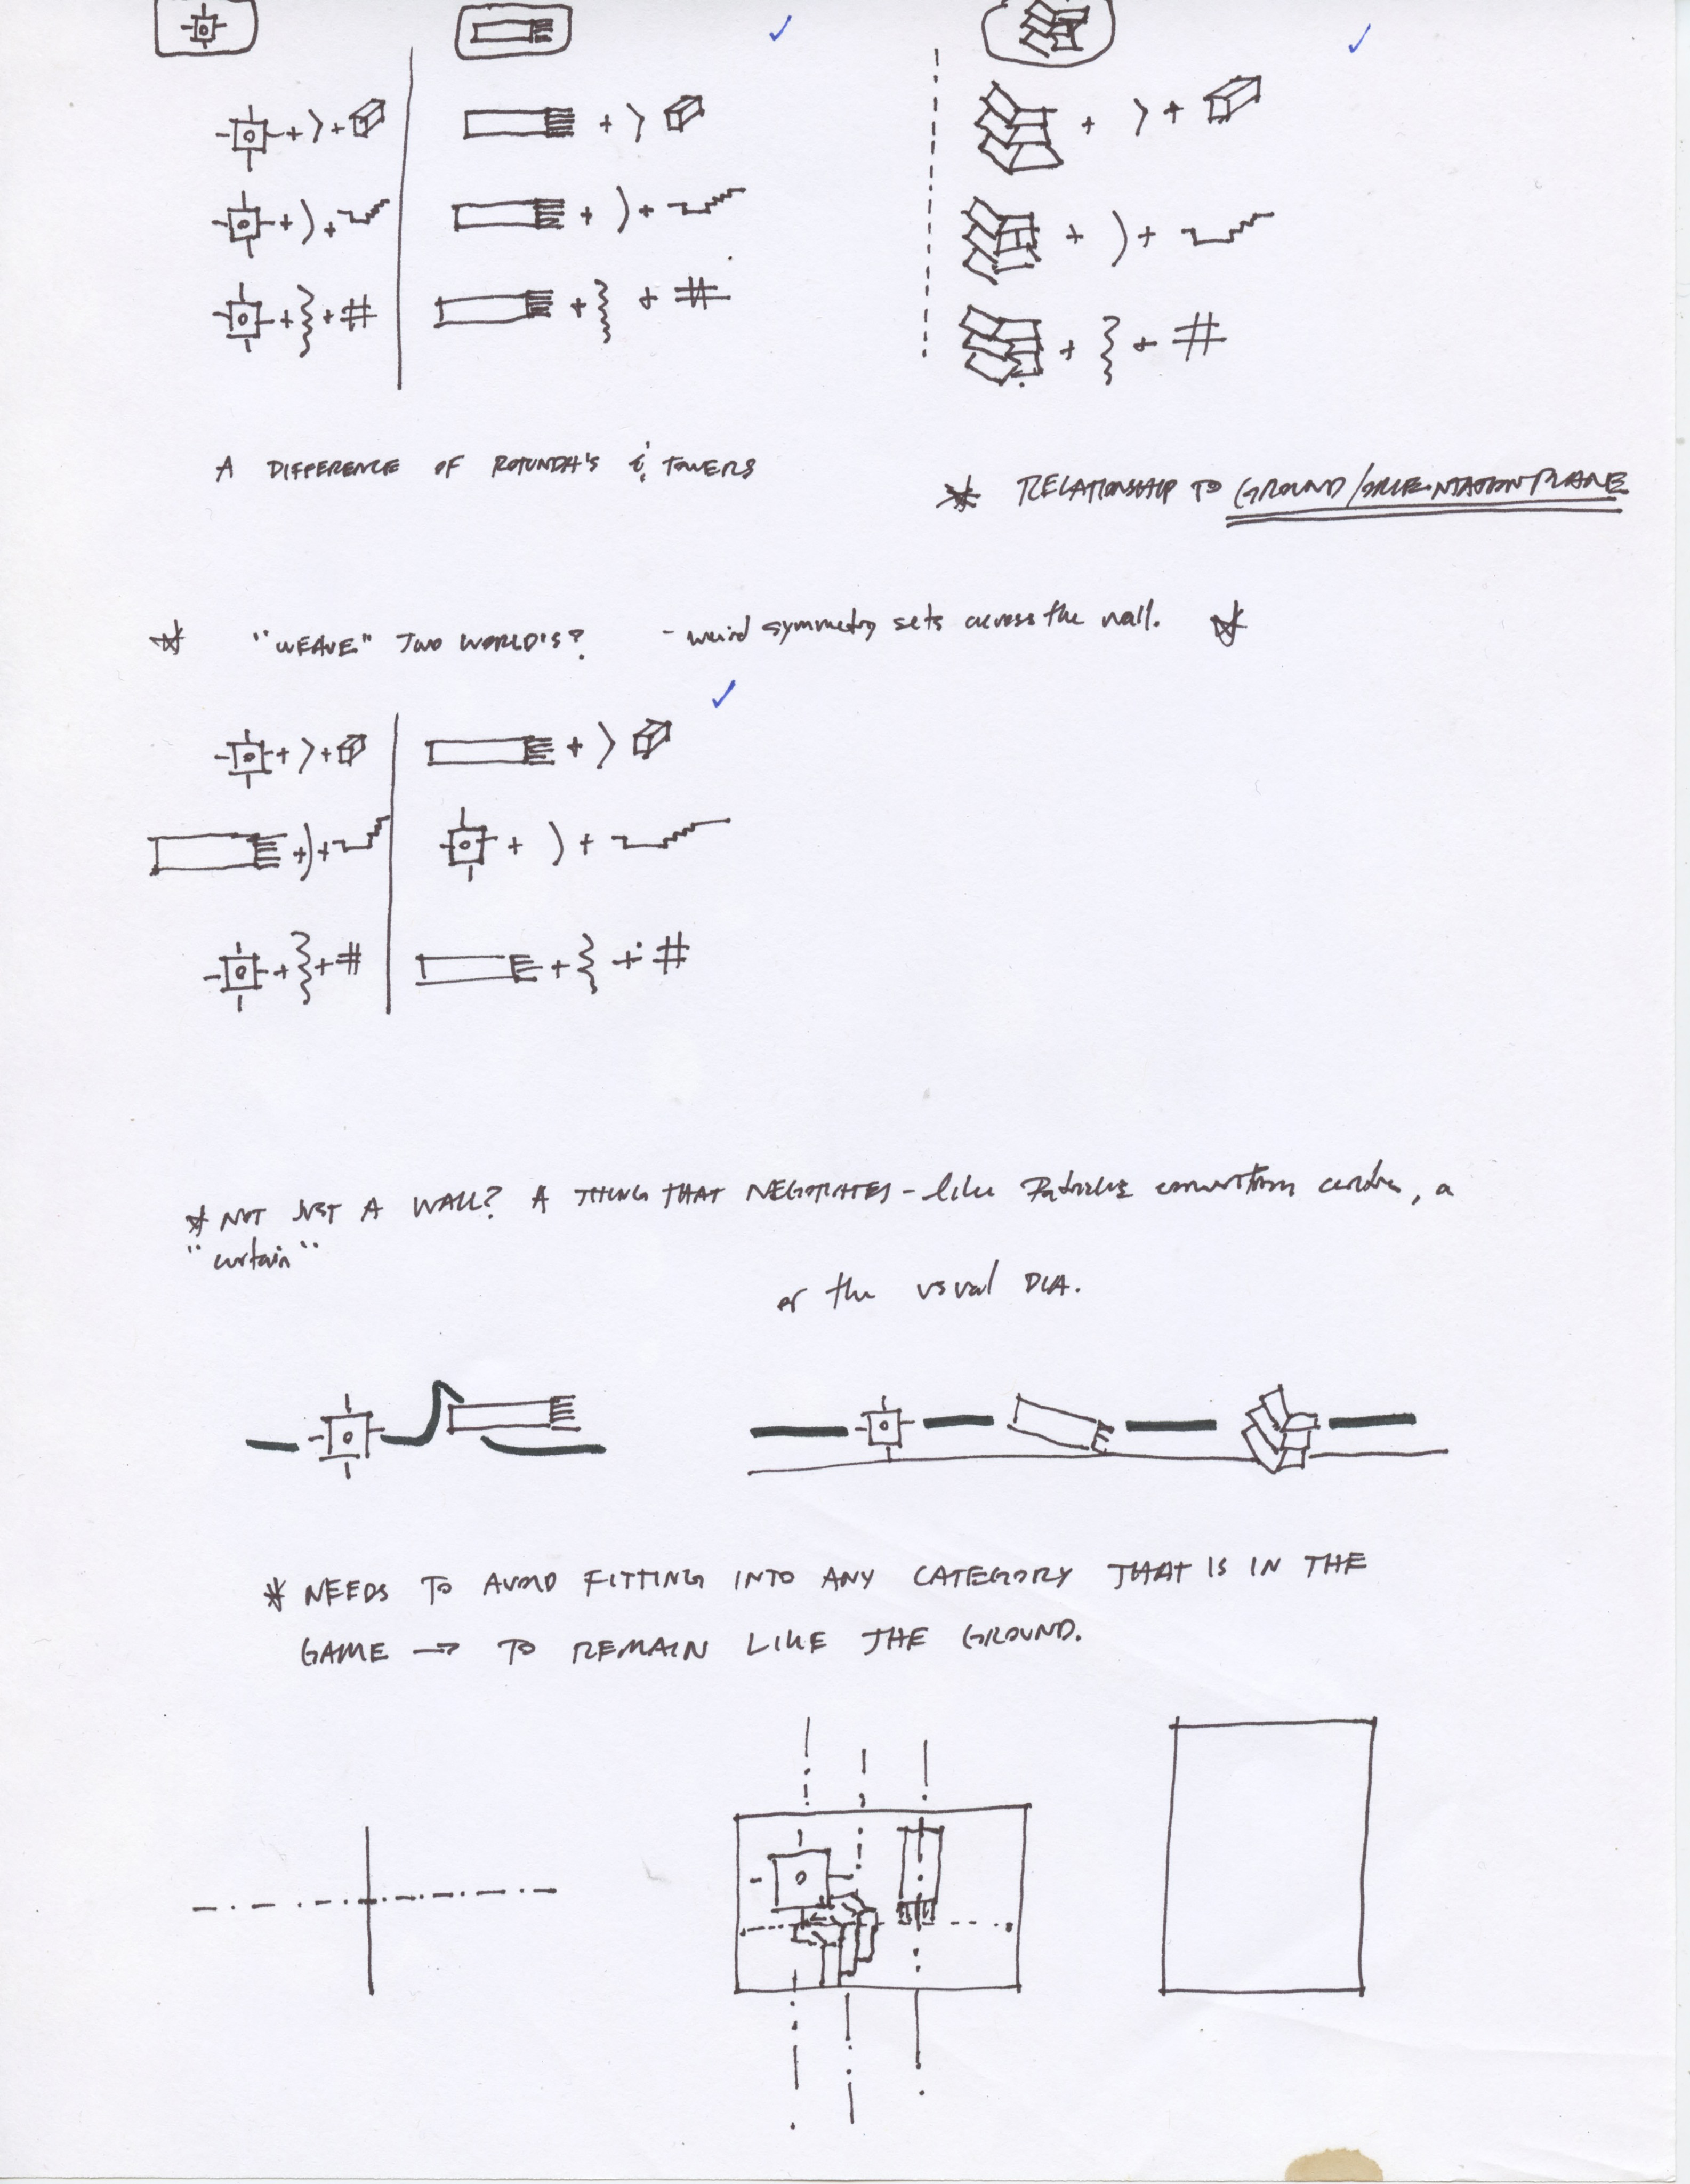 A DIFFERENCE OF ROTUNDA'S & TOWERS
RELATIONSHIP TO GROUND/ORIENTATION PLANE
"WEAVE" TWO WORLD'S? - weird symmetry sets across the wall.
NOT JUST A WALL? A THING THAT NEGOTIATES - like Patricks convention center, a
"curtain"
or the usual DLA.
* NEEDS TO AVOID FITTING INTO ANY CATEGORY THAT IS IN THE
GAME → TO REMAIN LIKE THE GROUND.